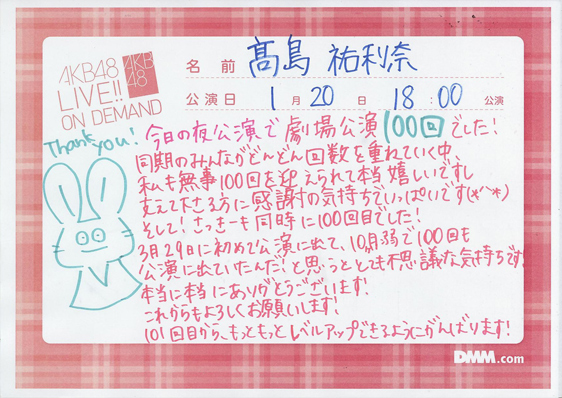 AKB48
LIVE!!
ON DEMAND
AKB
48
名前 髙島 祐利奈
公演日 1月20日 18:00公演
Thank you!
今日の夜公演で劇場公演100回でした!
同期のみんながどんどん回数を重ねていく中、
私も無事100回を迎えられて本当嬉しいですし
支えて下さる方に感謝の気持ちでいっぱいです(*´˘`*)
そして!さっきーも同時に100回目でした!
3月29日に初めて公演に出て、10ヶ月弱で100回も
公演に出ていたんだ!と思うととても不思議な気持ちです!
本当に本当にありがとうございます!
これからもよろしくお願いします!
101回目から、もっともっとレベルアップできるようにがんばります!
DMM.com